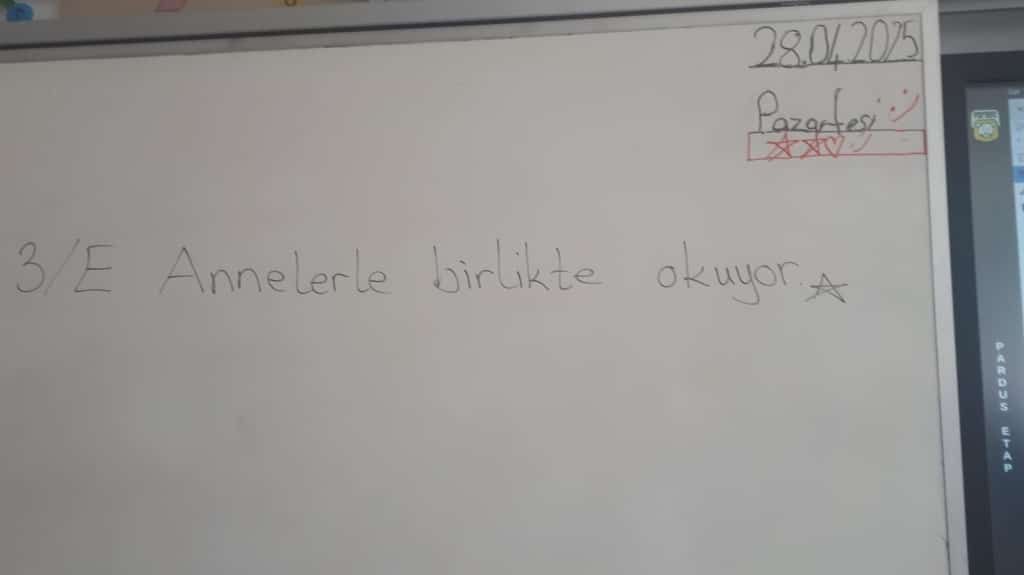 28.04.2025
Pazartesi :)
3/E Annelerle birlikte okuyor.
PARDUS ETAP